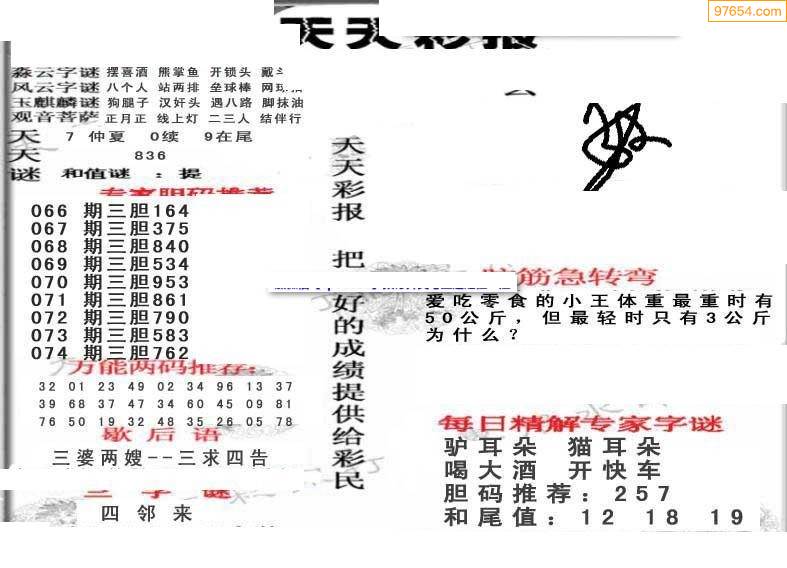 97654.com
天天彩报
森云字谜 摆喜酒 熊掌鱼 开锁头
风云字谜 八个人 站两排 垒球棒
玉麒麟谜 狗腿子 汉奸头 遇八路 脚抹油
观音菩萨 正月正 线上灯 二三人 结伴行
天 7 仲夏 0续 9在尾
天 836
谜 和值谜 : 提
专家胆码推荐
066 期三胆164
067 期三胆375
068 期三胆840
069 期三胆534
070 期三胆953
071 期三胆861
072 期三胆790
073 期三胆583
074 期三胆762
万能两码推荐:
32 01 23 49 02 34 96 13 37
39 68 37 47 34 60 45 09 81
76 50 19 32 48 35 26 05 78
歇后语
三婆两嫂--三求四告
三字谜
四邻来
天天彩报 把好的成绩提供给彩民
筋急转弯
爱吃零食的小王体重最重时有
50公斤，但最轻时只有3公斤
为什么？
每日精解专家字谜
驴耳朵 猫耳朵
喝大酒 开快车
胆码推荐: 257
和尾值: 12 18 19